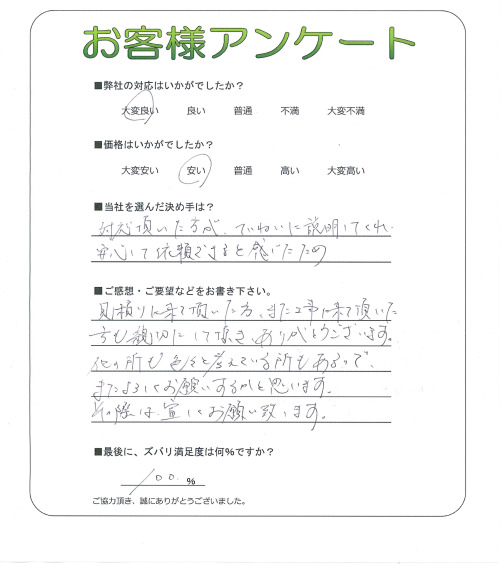 お客様アンケート
■弊社の対応はいかがでしたか？
大変良い 良い 普通 不満 大変不満
■価格はいかがでしたか？
大変安い 安い 普通 高い 大変高い
■当社を選んだ決め手は？
対応頂いた方が、ていねいに説明してくれ
安心して依頼できると感じたため
■ご感想・ご要望などをお書き下さい。
見積りに来て頂いた方、また工事に来て頂いた
方も親切にして頂き、ありがとうございます。
他の所も色々と考えている所もあるので、
またよろしくお願いするかと思います。
その際は、宜しくお願い致します。
■最後に、ズバリ満足度は何％ですか？
100. ％
ご協力頂き、誠にありがとうございました。